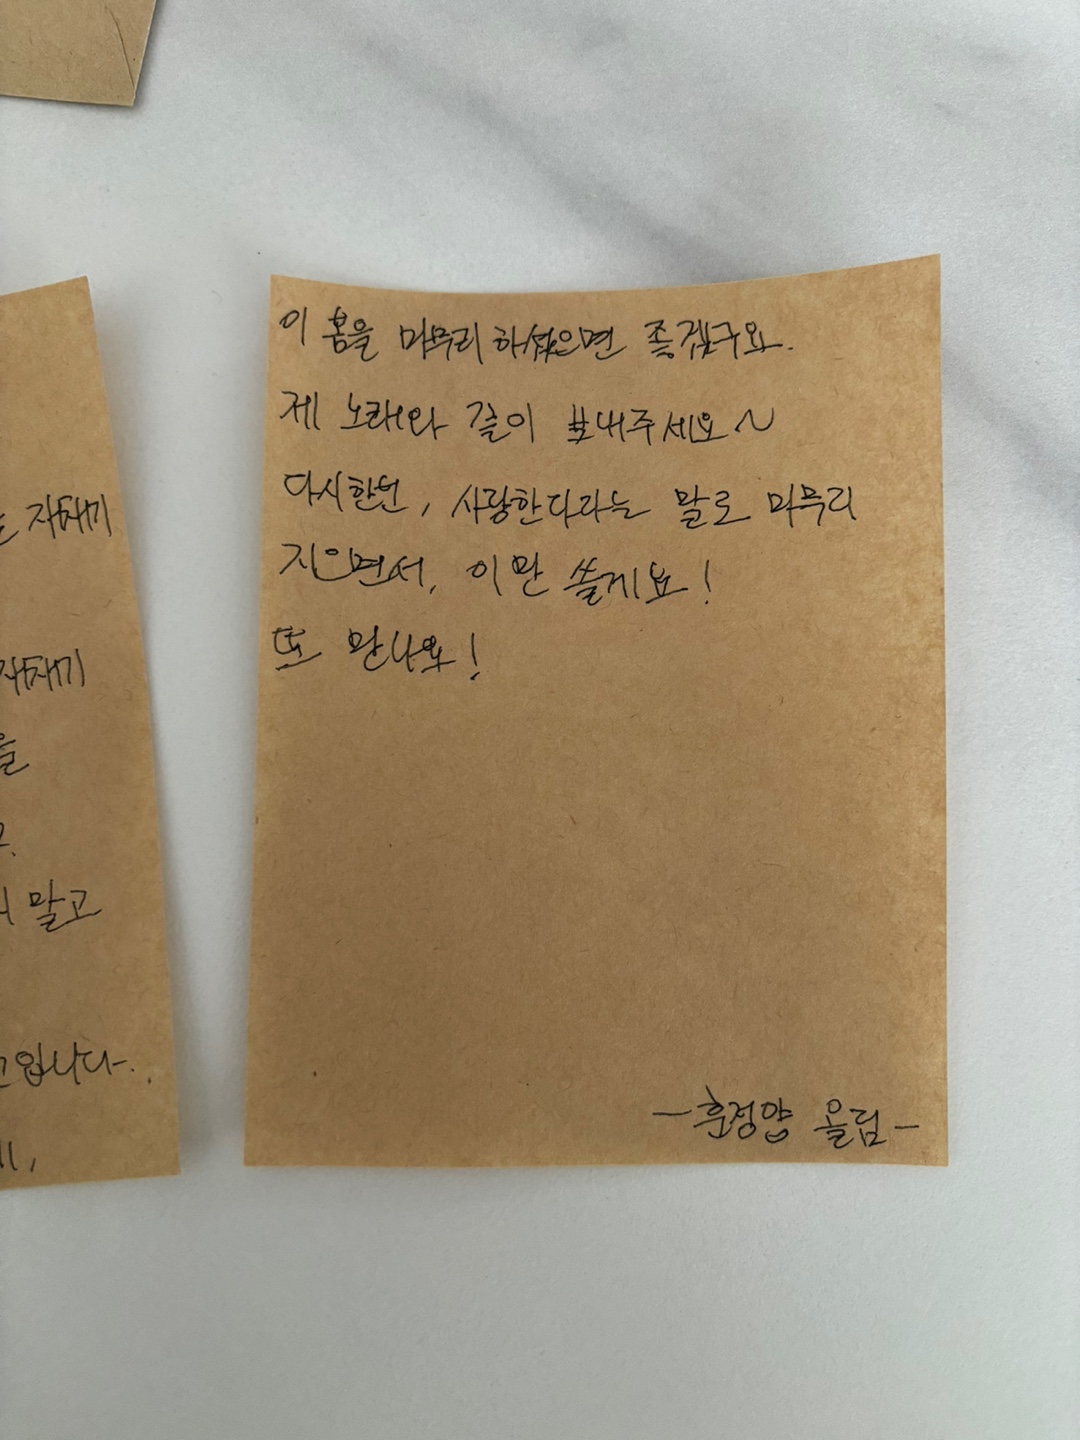 는 자태기
자태기
을
고.
말고
고입니다..
이 봄을 마무리 하셨으면 좋겠구요.
제 노래와 같이 보내주세요~
다시한번, 사랑한다라는 말로 마무리
지으면서, 이만 쓸게요!
또 만나요!
-훈정얍 올림-